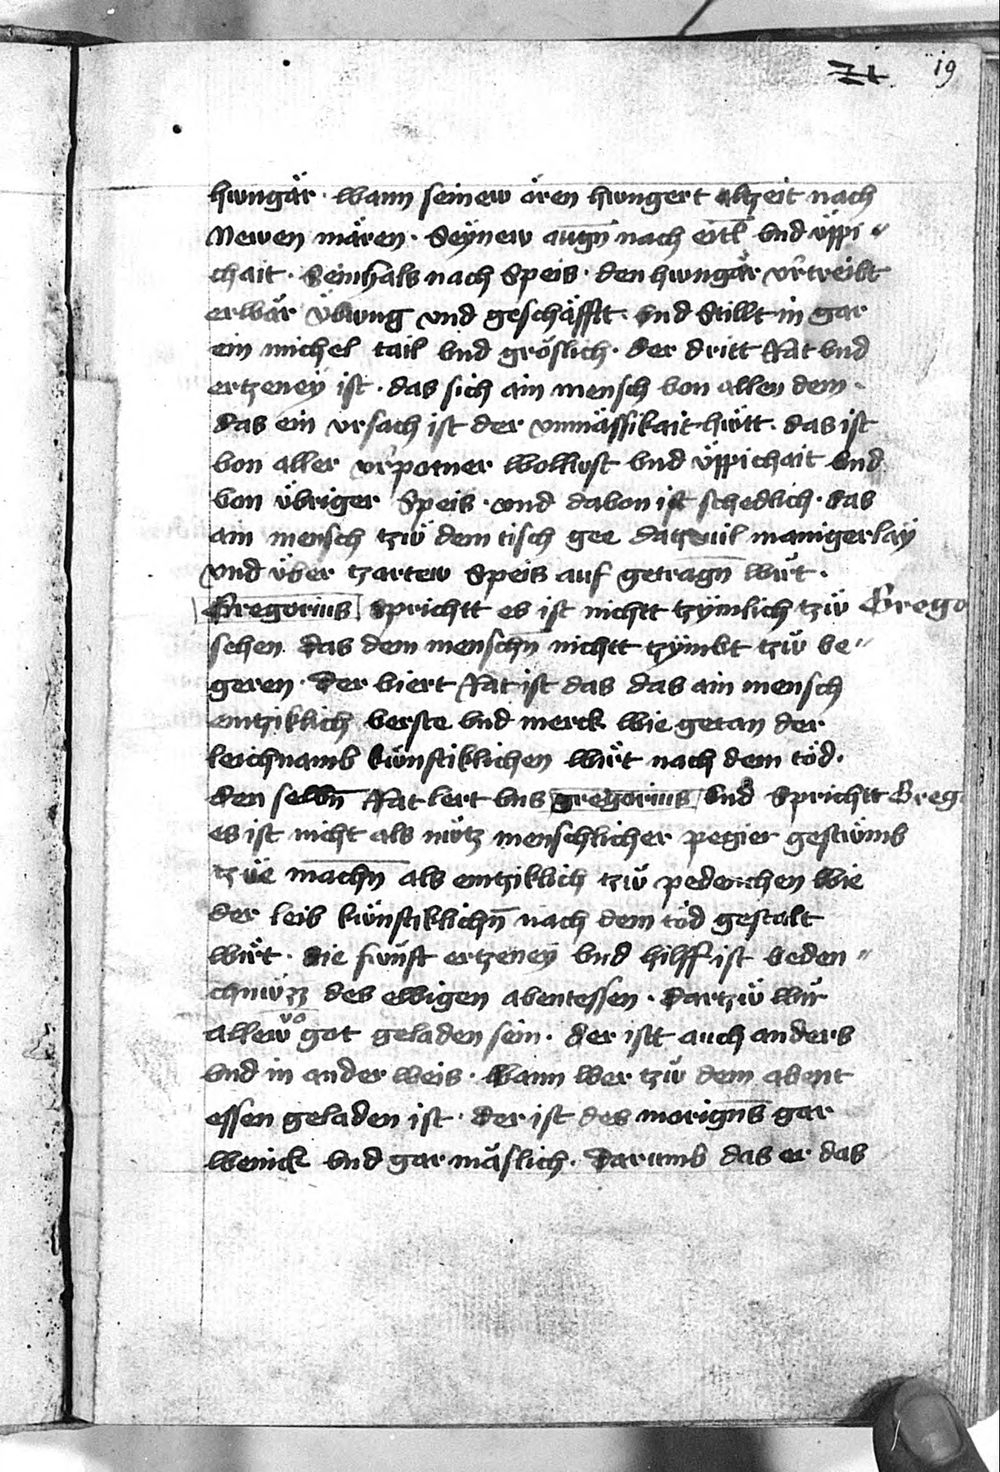 19
hwngär · wann seinew ören hwngert altzeit nach
Newen mären · Seynew augn̄ nach eitl̄ vnd üppi〃
chait · Sein hals nach Speis · den hwngär vertreibt
erbär Übung vnd geschäfftt · vnd Stillt in gar
ein michel tail vnd gröslich · der dritt Rat vnd
ertzeney ist · das sich ain mensch von allen dem ·
das ein vrsach ist der vnmässikait hütt · das ist
von aller verpotner wollust vnd üppichait vnd
von übriger Speis · vnd davon ist schedlich · das
ain mensch tzw̆ dem tisch gee datz vil manigerlay
vnd über tzartew Speis auf getragn̄ wirt ·
Gregorius sprichtt es ist nichtt tzÿmlich tzw̆ Grego
sehen das dem menschn̄ nichtt tzÿmbt tzw̆ be〃
geren · Der viert Rat ist das das ain mensch
emtziklich verste vnd merck wie getan der
leichnamb künftiklichen wirt nach dem töd ·
den selbn̄ Rat lert vns gregorius vnd Sprichtt Greg
es ist nicht als nütz menschlicher pegier gestümb
tzüe machn̄ als emtziklich tzw̆ pedenchen wie
der leib künftiklichn̄ nach dem töd gestalt
wirt · die fünft ertzeney vnd hilff ist beden〃
chnüzz des ewigen abentessen · dartzw̆ wir
allew vo got geladen sein · der istt auch anders
vnd in ander weis · wann wer tzw̆ dem abent
essen geladen ist · der ist des morigns̄ gar
wenick vnd gar mäslich · Darumb das er das